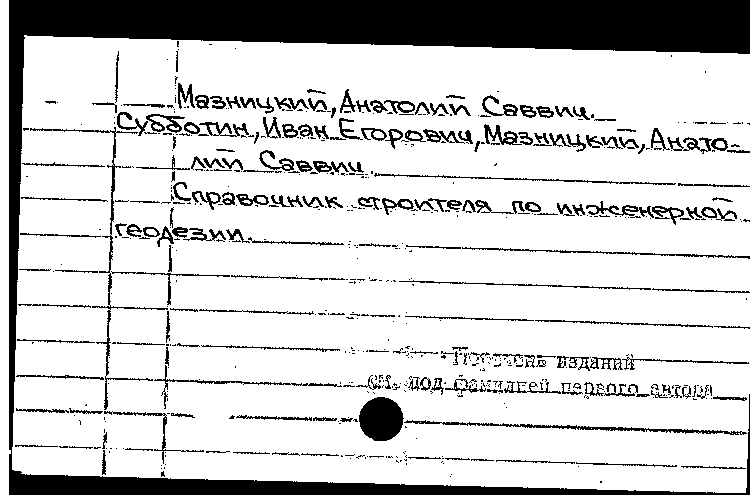 Мазницкий, Анатолий Саввич.
Субботин, Иван Егорович, Мазницкий, Анато-
лий Саввич.
Справочник строителя по инженерной
геодезии.
Перечень изданий
см. под фамилией первого автора